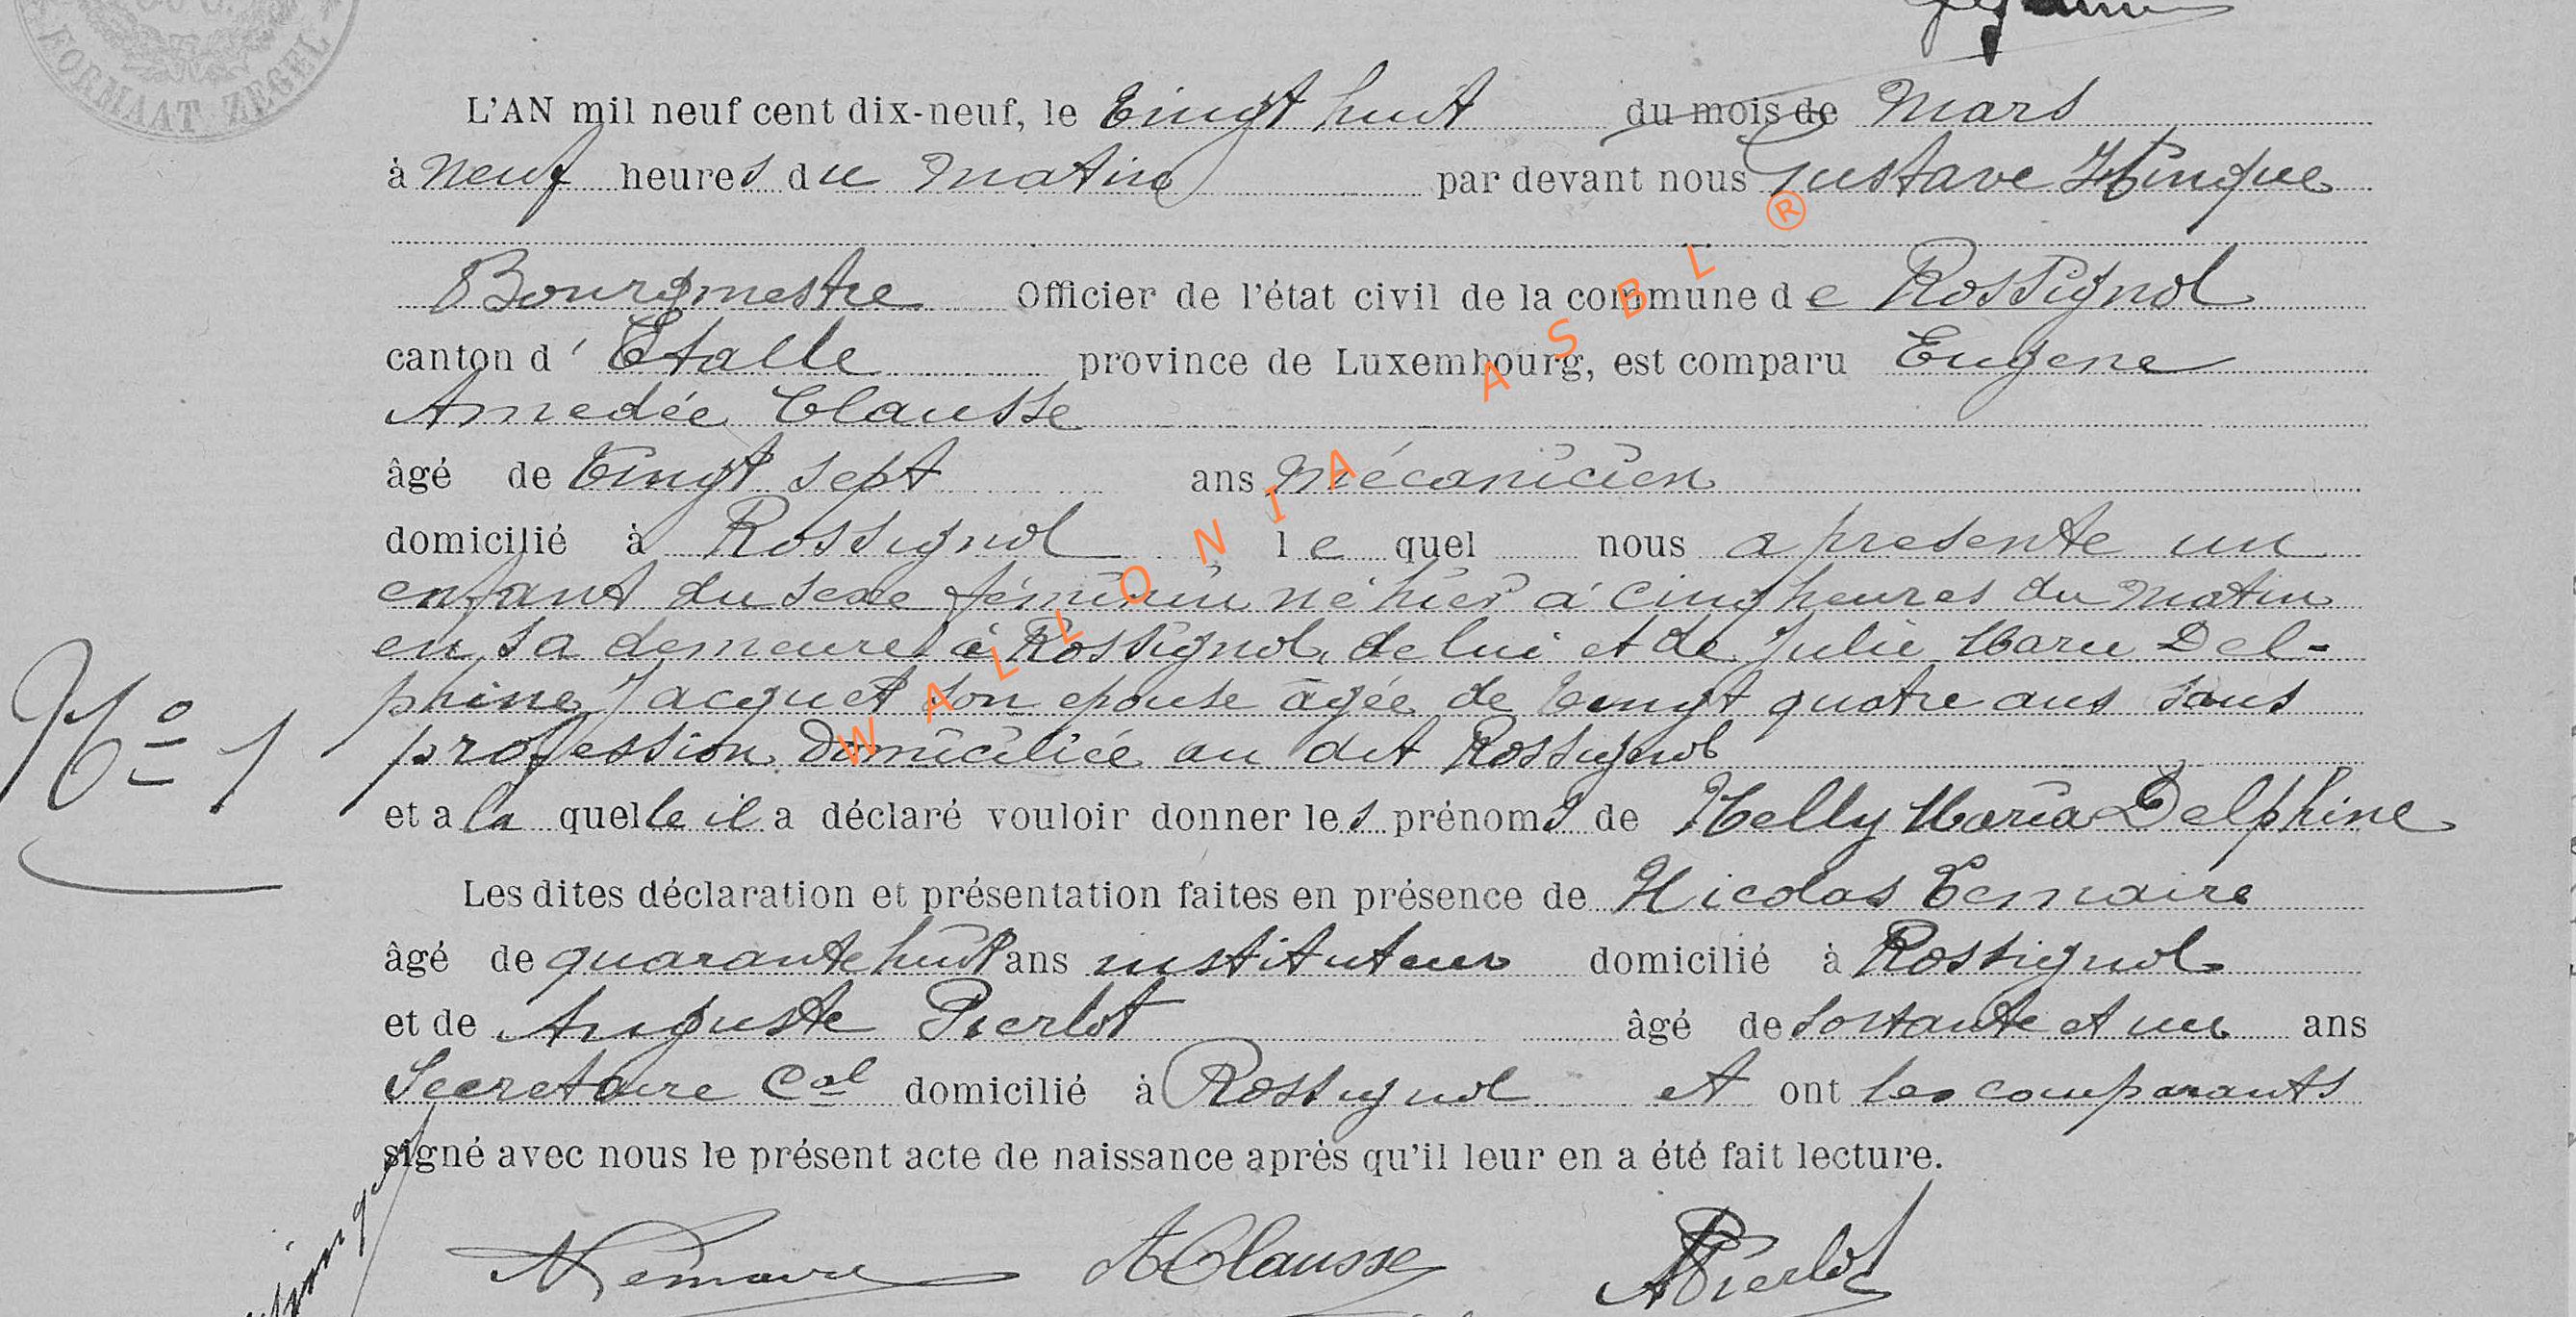 FORMAAT ZEGEL
L'AN mil neuf cent dix-neuf, le Vingt huit du mois de Mars
à neuf heures du matin par devant nous Gustave Hinque
Bourgmestre Officier de l'état civil de la commune de Rossignol
canton d'Etalle province de Luxembourg, est comparu Eugene
Amedée Clausse
âgé de Vingt sept ans Mécanicien
domicilié à Rossignol le quel nous a presente un
enfant du sexe féminin né hier à cinq heures du matin
en sa demeure à Rossignol, de lui et de Julie Marie Del-
phine Jacquet son epouse agée de vingt quatre ans sans
profession domiciliée au dit Rossignol
N° 1
et a la quelle il a déclaré vouloir donner les prénoms de Nelly Maria Delphine
Les dites déclaration et présentation faites en présence de Nicolas Lemaire
âgé de quarante huit ans instituteur domicilié à Rossignol
et de Auguste Pierlot âgé de soixante et un ans
Secretaire Cal domicilié à Rossignol et ont les comparants
signé avec nous le présent acte de naissance après qu'il leur en a été fait lecture.
NLemaire AClausse APierlot
WALLONIA ASBL ®